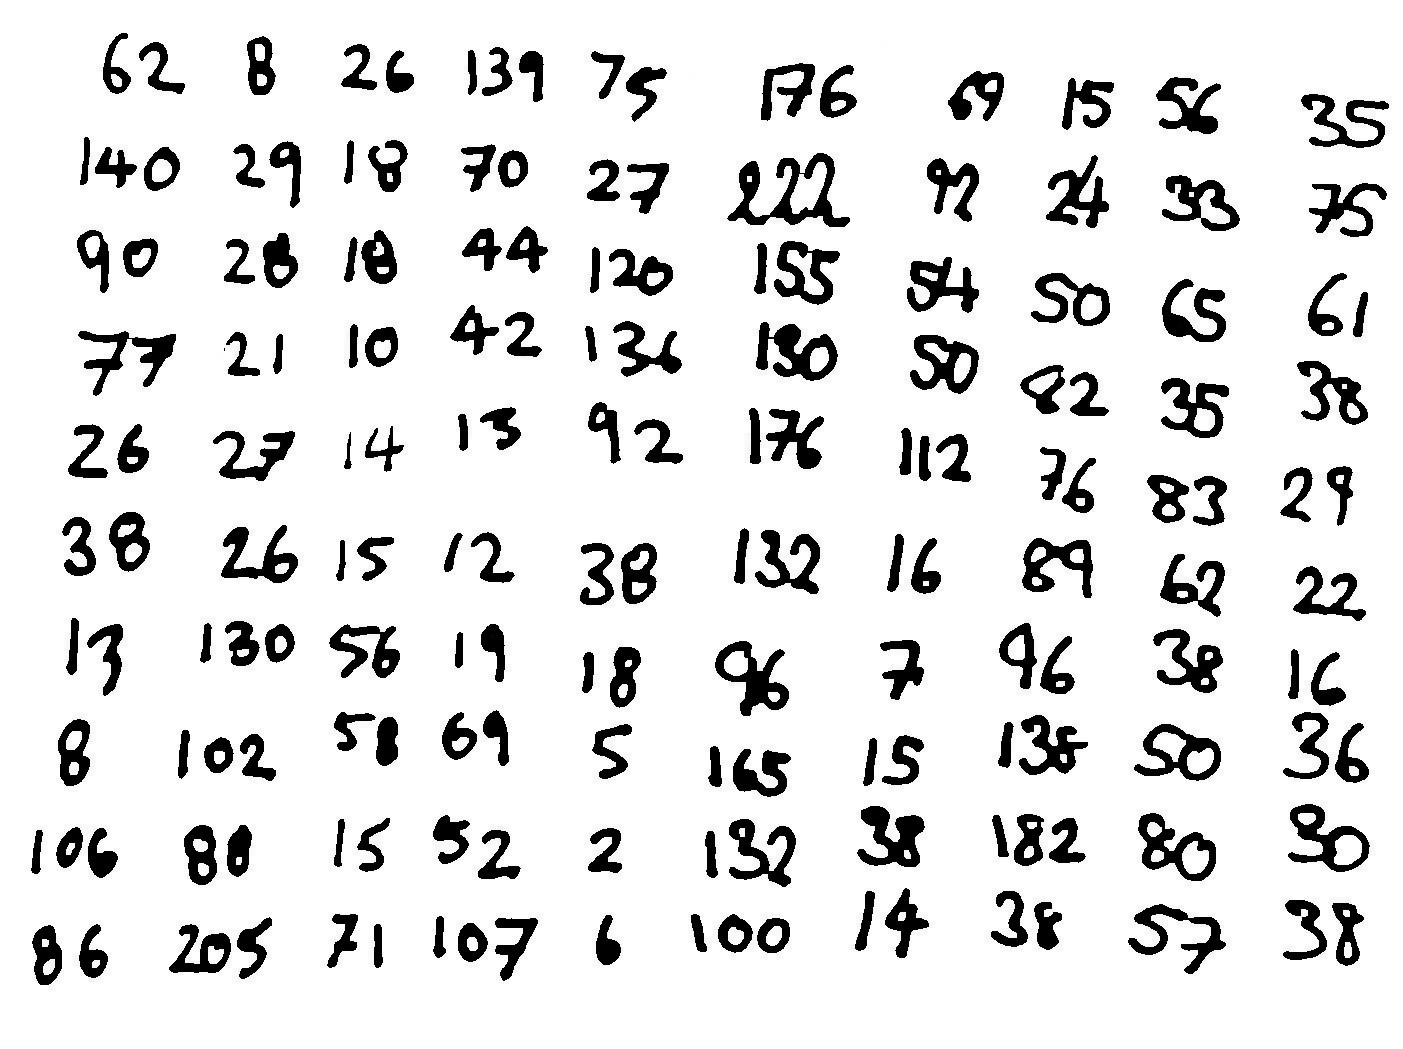 62 8 26 139 75 176 69 15 56 35
140 29 18 70 27 222 92 24 33 75
90 28 18 44 120 155 54 50 65 61
77 21 10 42 136 130 50 82 35 38
26 27 14 13 92 176 112 76 83 29
38 26 15 12 38 132 16 89 62 22
13 130 56 19 18 96 7 96 38 16
8 102 58 69 5 165 15 138 50 36
106 88 15 52 2 132 38 182 80 30
86 205 71 107 6 100 14 38 57 38